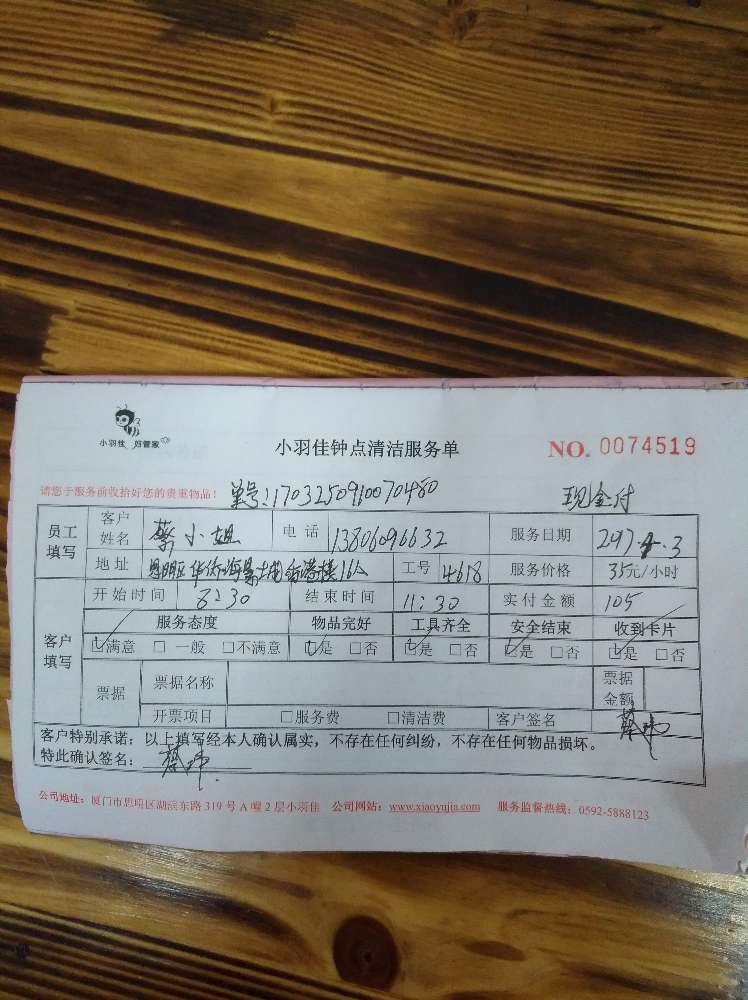 小羽佳 好管家
小羽佳钟点清洁服务单
NO. 0074519
请您于服务前收拾好您的贵重物品！ 单号:1703250910070480 现金付
员工填写 客户姓名 蔡小姐 电话 13806096632 服务日期
地址 思明区华侨海景城香港楼 工号 4618 服务价格 35元/小时
客户填写 开始时间 8:30 结束时间 11:30 实付金额 105
服务态度 物品完好 工具齐全 安全结束 收到卡片
☑满意 □一般 □不满意 ☑是 □否 ☑是 □否 ☑是 □否 ☑是 □否
票据 票据名称 票据金额
开票项目 □服务费 □清洁费 客户签名 蔡
客户特别承诺：以上填写经本人确认属实，不存在任何纠纷，不存在任何物品损坏。
特此确认签名： 蔡
公司地址：厦门市思明区湖滨东路319号A幢2层小羽佳 公司网站：www.xiaoyujia.com 服务监督热线：0592-5888123